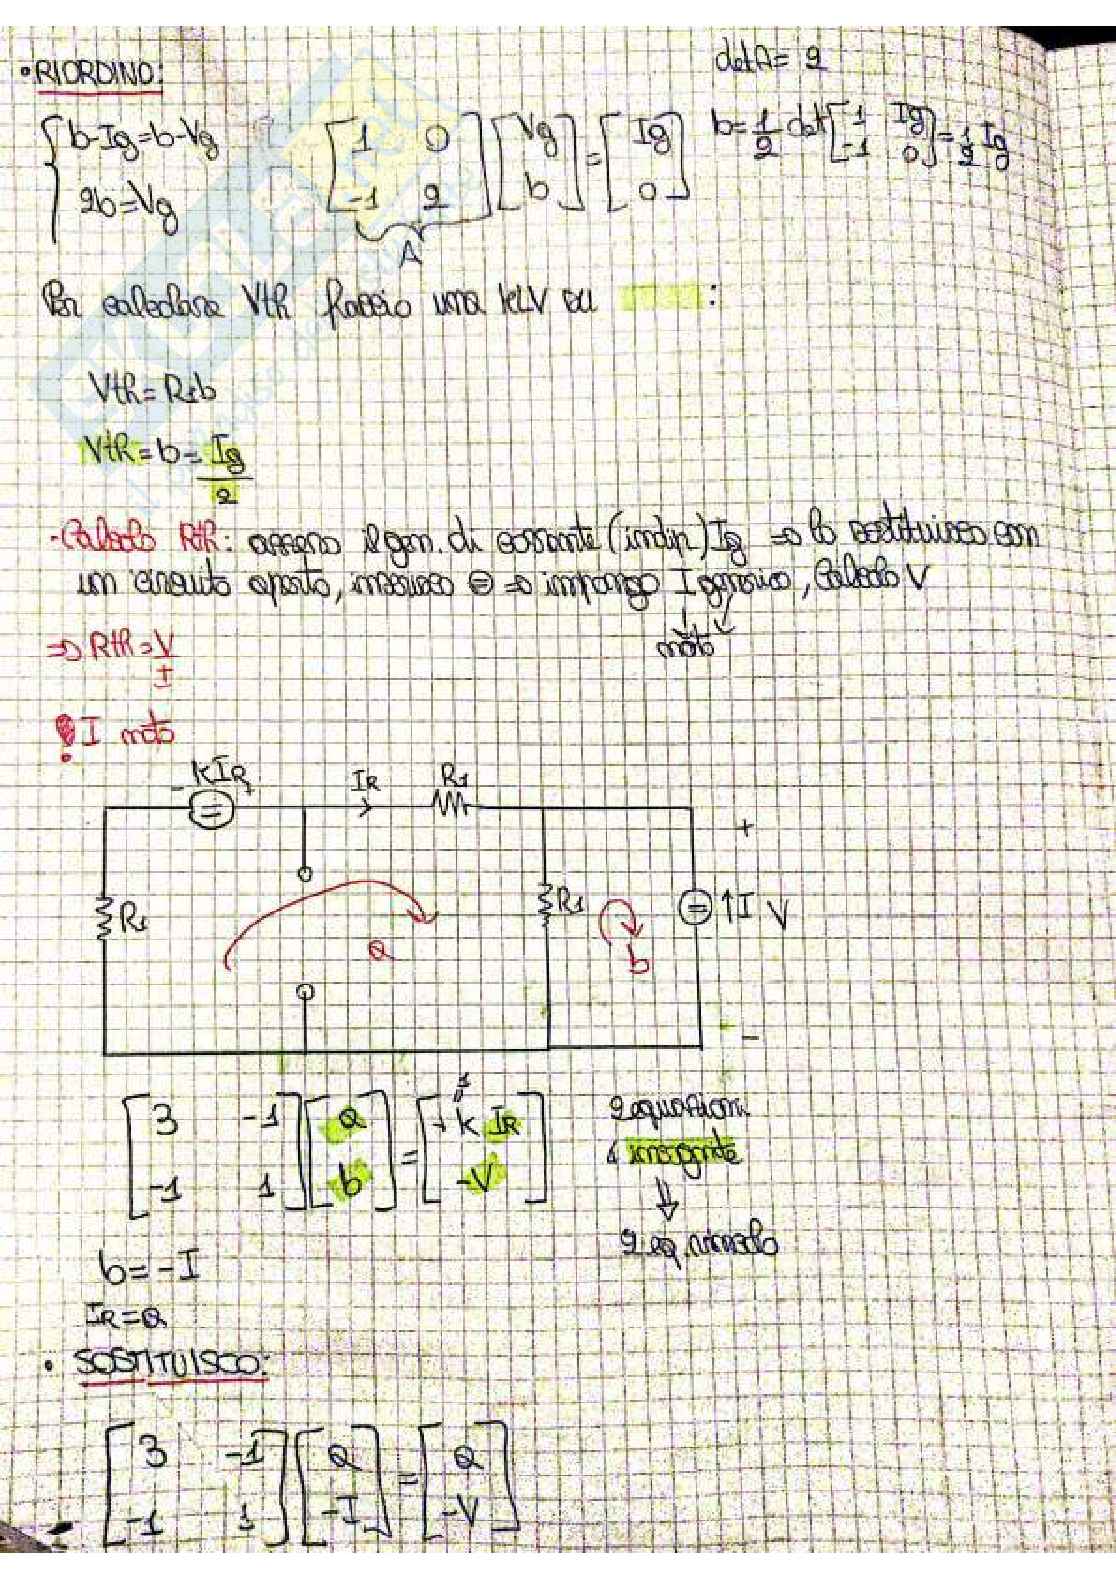 • RIORDINO:
detA = 2
b-Ig=b-Vg
2b=Vg
[1 0 -1 2] [Vg b] = [Ig 0]
A
b=1/2 det[1 Ig -1 0]=1/2 Ig
Per calcolare Vth faccio una KLV su :
Vth=R1b
Vth=b=Ig/2
-Calcolo Rth: spengo il gen. di corrente (indip) Ig => lo sostituisco con
un circuito aperto, inserisco ⊖ => impongo I generico, calcolo V
noto
=> Rth=V/I
! I noto
- KIR +
IR
R1
R1
R1
↑I V
+
-
a
b
[3 -1 -1 1] [a b] = [+k IR -V]
1
2 equazioni
4 incognite
⇓
2 eq. vincolo
b=-I
IR=a
• SOSTITUISCO:
[3 -1 -1 1] [a -I] = [a -V]